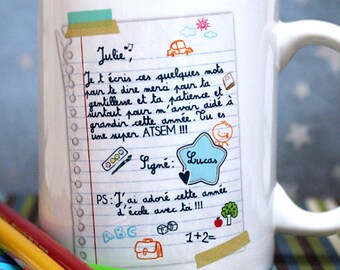 Julie,
Je t'écris ces quelques mots
pour te dire merci pour ta
gentillesse et ta patience et
surtout pour m'avoir aidé à
grandir cette année. Tu es
une super ATSEM !!!
Signé: Lucas
PS: J'ai adoré cette année
d'école avec toi !!!
ABC
1+2=